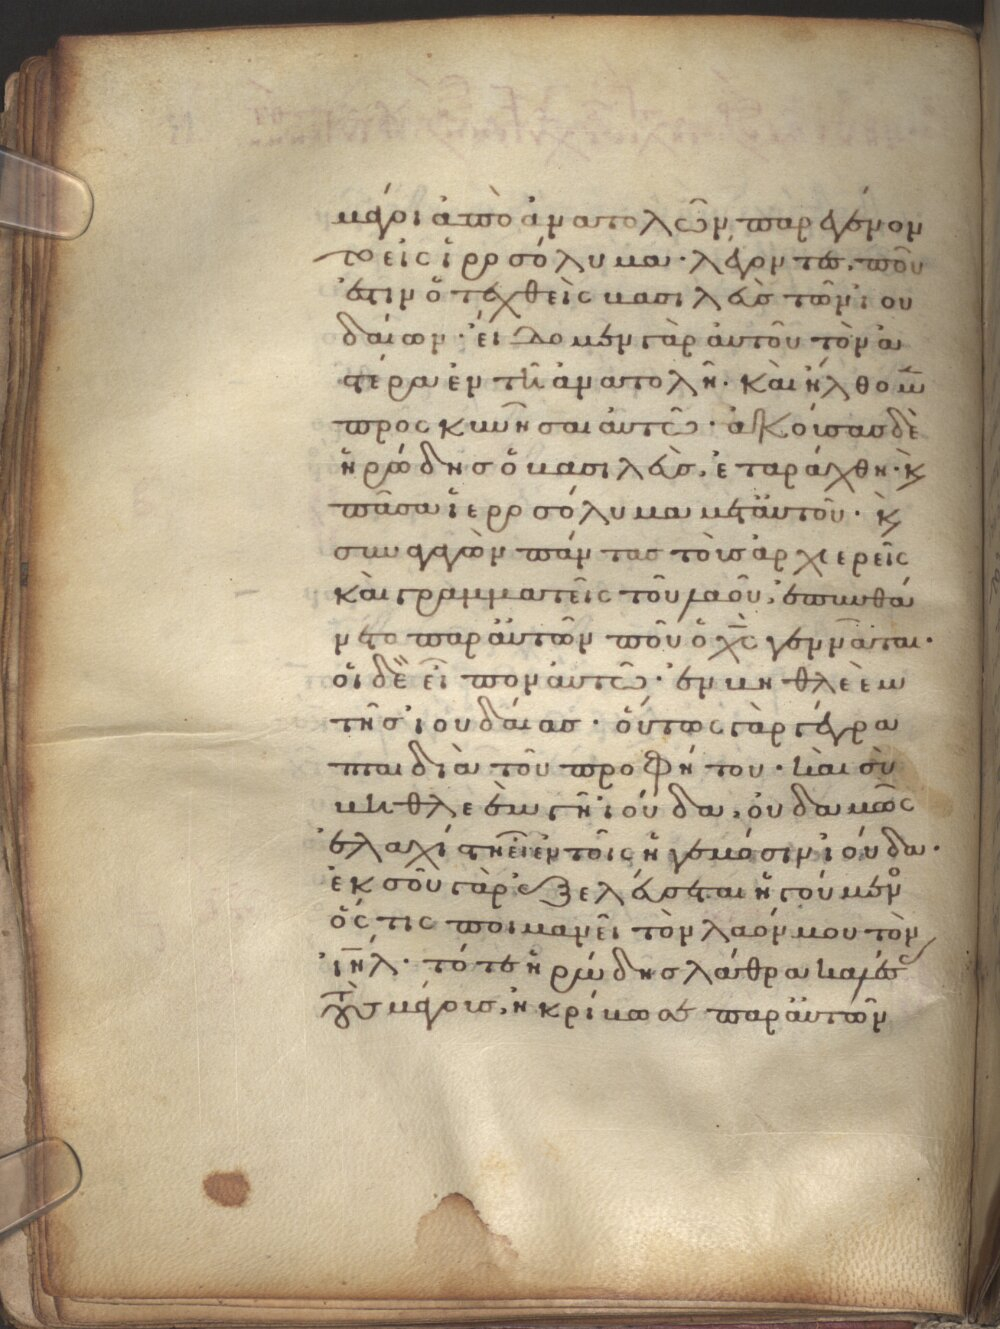 μάγοι ἀπὸ ἀνατολῶν παρεγένον
το εἰς ἱεροσόλυμα· λέγοντες, ποῦ
ἐστιν ὁ τεχθεὶς βασιλεὺς τῶν ἰου
δαίων· εἴδομεν γὰρ αὐτοῦ τὸν ἀ
στέρα ἐν τῆ ἀνατολῆ· καὶ ἤλθομεν
προσκυνῆσαι αὐτῶ· ἀκούσας δὲ
ἡρώδης ὁ βασιλεὺς, ἐταράχθη· κ
πᾶσα ἱεροσόλυμα μετ αὐτοῦ· κ
συναγαγὼν πάντας τοὺς ἀρχιερεῖς
καὶ γραμματεῖς τοῦ λαοῦ, ἐπυνθά
νετο παρ αὐτῶν ποῦ ὁ χς γεννᾶται·
οἱ δὲ εἶπον αὐτῶ· ἐν βηθλεὲμ
τῆς ἰουδαίας· οὕτως γὰρ γέγρα
πται διὰ τοῦ προφήτου· καὶ σὺ
βηθλεὲμ γῆ ἰούδα, οὐδαμῶς
ἐλαχίστη εἶ ἐν τοῖς ἡγεμόσιν ἰούδα·
ἐκ σοῦ γὰρ ἐξελεύσεται ἡγούμενο
ὅστις ποιμανεῖ τὸν λαόν μου τὸν
ιηλ· τότε ἡρώδης λάθρα καλέσας
τοὺς μάγους, ἠκρίβωσε παρ αὐτῶν